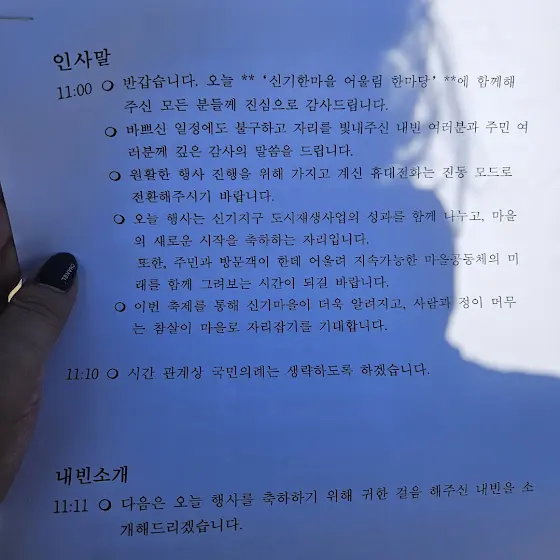 인사말
11:00 ❍ 반갑습니다. 오늘 ** '신기한마을 어울림 한마당' **에 함께해
주신 모든 분들께 진심으로 감사드립니다.
❍ 바쁘신 일정에도 불구하고 자리를 빛내주신 내빈 여러분과 주민 여
러분께 깊은 감사의 말씀을 드립니다.
❍ 원활한 행사 진행을 위해 가지고 계신 휴대전화는 진동 모드로
전환해주시기 바랍니다.
❍ 오늘 행사는 신기지구 도시재생사업의 성과를 함께 나누고, 마을
의 새로운 시작을 축하하는 자리입니다.
또한, 주민과 방문객이 한데 어울려 지속가능한 마을공동체의 미
래를 함께 그려보는 시간이 되길 바랍니다.
❍ 이번 축제를 통해 신기마을이 더욱 알려지고, 사람과 정이 머무
는 참살이 마을로 자리잡기를 기대합니다.
11:10 ❍ 시간 관계상 국민의례는 생략하도록 하겠습니다.
내빈소개
11:11 ❍ 다음은 오늘 행사를 축하하기 위해 귀한 걸음 해주신 내빈을 소
개해드리겠습니다.